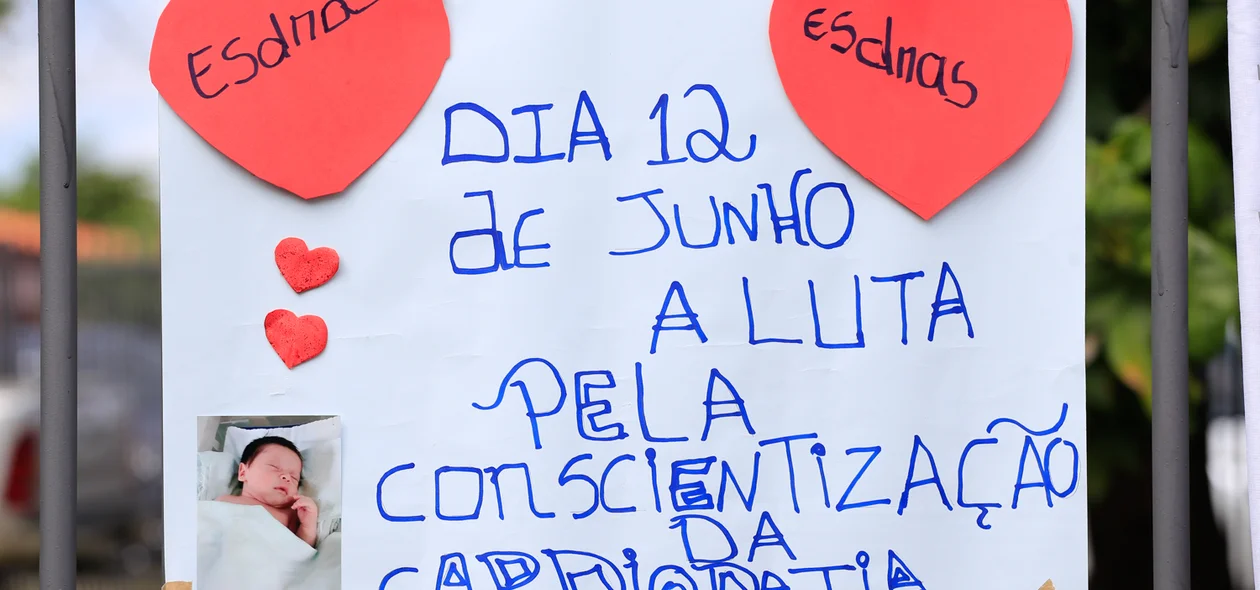 Esdras
Esdras
DIA 12
de JUNHO
A LUTA
PELA
CONSCIENTIZAÇÃO
DA
CARDIOPATIA